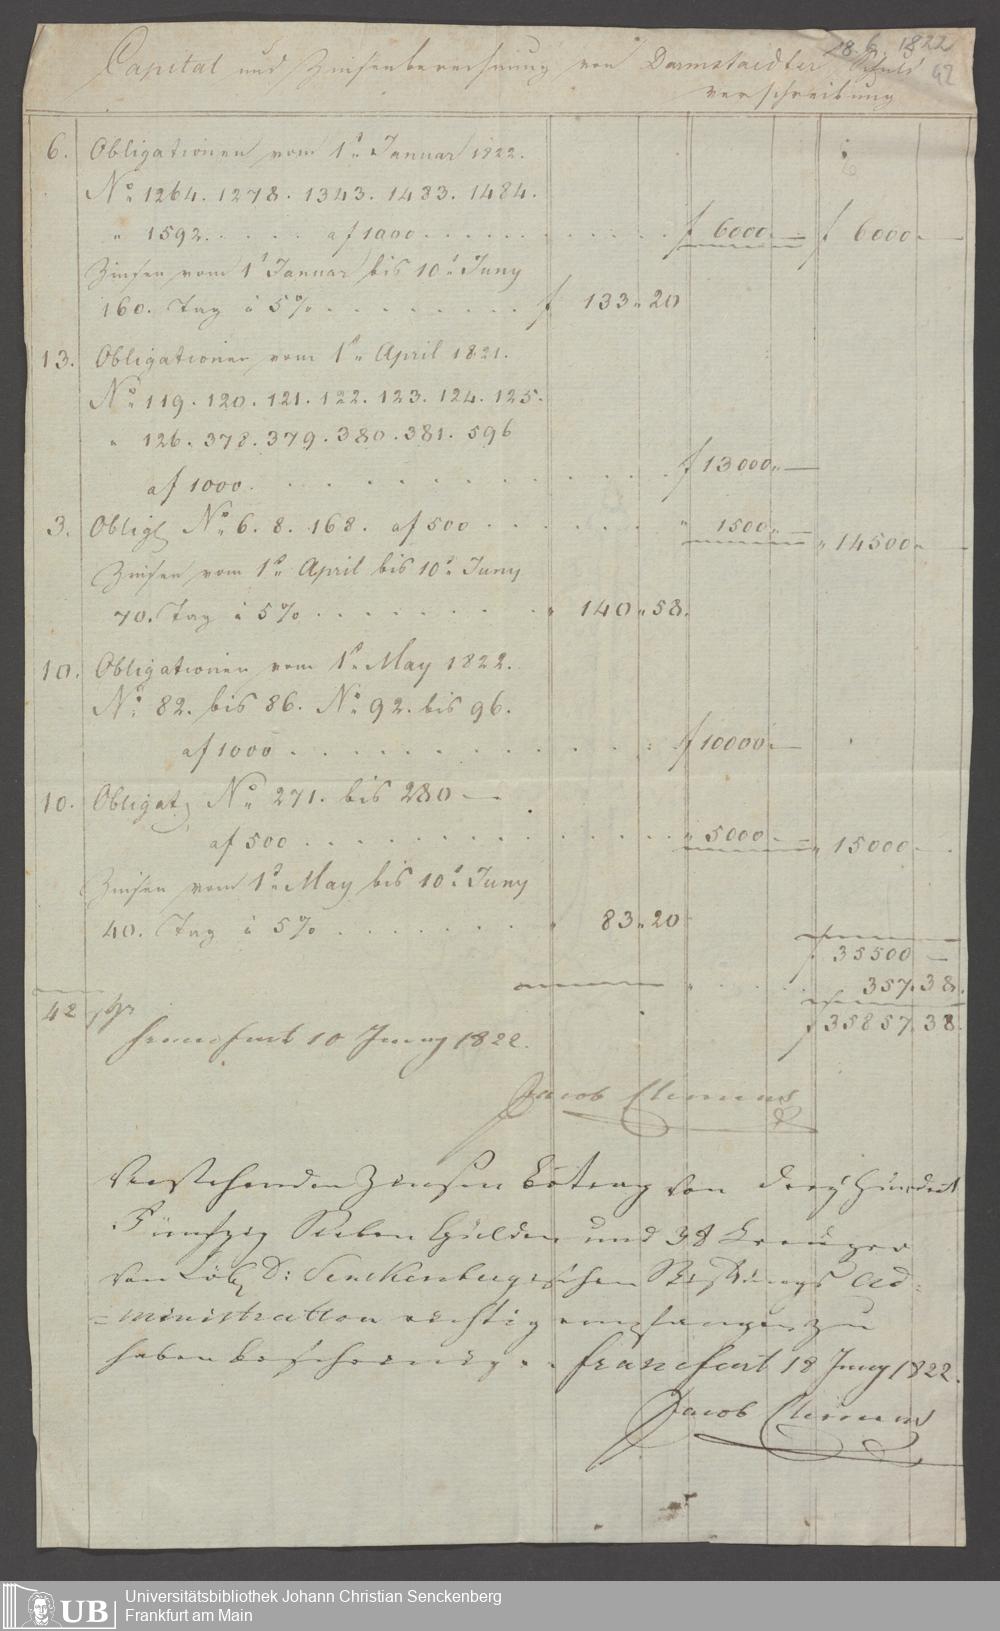 18. 6. 1822
42
Capital und Zinsenberechnung von Darmstaedter Schuld
verschreibung
6. Obligationen vom 1n Januar 1822.
No 1264. 1278. 1343. 1483. 1484.
" 1592. . . . . a f 1000 . . . . . . . . . . . f 6000 — f 6000 —
Zinsen vom 1n Januar bis 10n Juny
160. Tag à 5% . . . . . . . . f 133 " 20
13. Obligationen vom 1n April 1821.
No 119. 120. 121. 122. 123. 124. 125.
" 126. 378. 379. 380. 381. 596
a f 1000 . . . . . . . . . . . f 13000 " —
3. Oblig No 6. 8. 168. a f 500 . . . . . . " 1500 " — " 14500 " —
Zinsen vom 1n April bis 10n Juny
70. Tag à 5% . . . . . . . . " 140 " 58.
10. Obligationen vom 1n May 1822.
No 82. bis 86. No 92. bis 96.
a f 1000 . . . . . . . . . . . f 10000 —
10. Obligat No 271. bis 280 —
a f 500 . . . . . . . . . . . " 5000 — " 15000 —
Zinsen vom 1n May bis 10n Juny
40. Tag à 5% . . . . . . . " 83 " 20
f 35500 —
" . . . . 357. 38.
42 f 35857. 38.
Francfurt 10 Juny 1822.
Jacob Clemens
Vorstehenden Zinsen Betrag von Drey Hundert
Fünfzig Sieben Gulden und 38 Kreuzer
von Löbl D: Senckenbergischen Stiftungs Ad=
=ministration richtig empfangen zu
haben bescheinige. Francfurt 18 Juny 1822.
Jacob Clemens
UB
Universitätsbibliothek Johann Christian Senckenberg
Frankfurt am Main